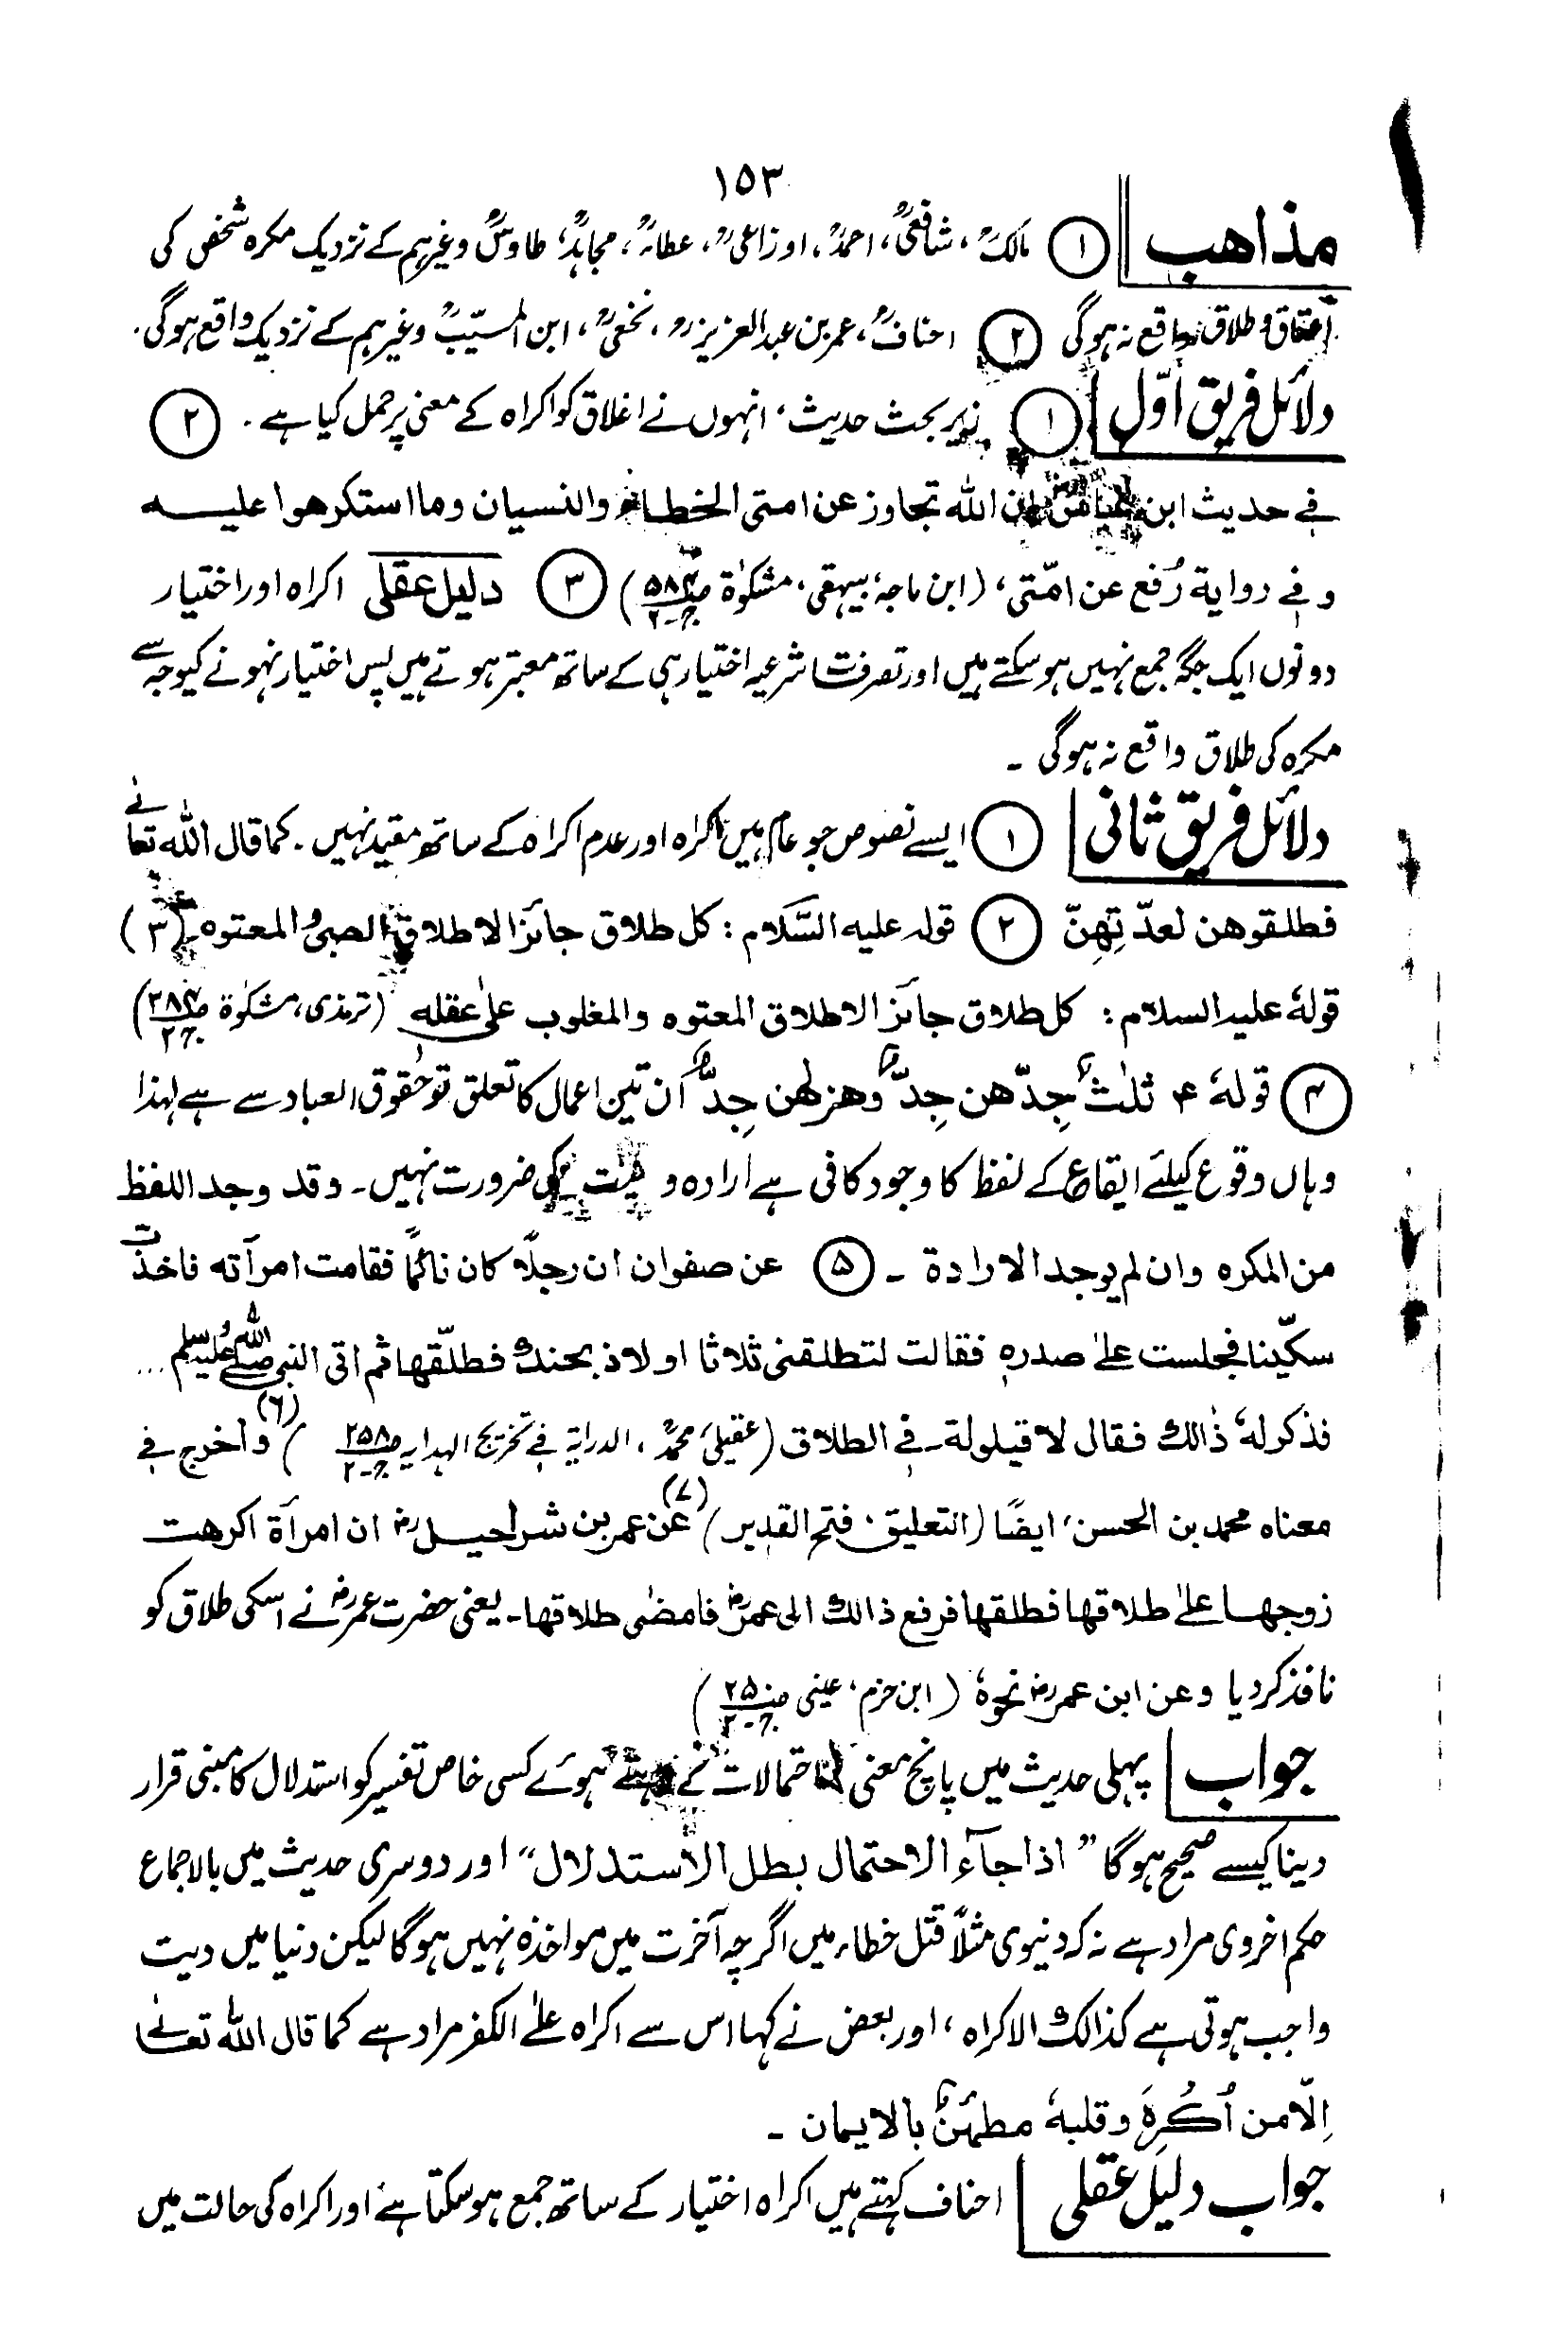 ١٥٣
مذاهب ① مالکؒ، شافعیؒ، احمدؒ، اوزاعیؒ، عطاءؒ، مجاہدؒ، طاوسؒ وغیرہم کے نزدیک مکرہ شخص کی
اعتاق و طلاق واقع نہ ہوگی ② احنافؒ، عمر بن عبدالعزیزؒ، نخعیؒ، ابن المسیّبؒ وغیرہم کے نزدیک واقع ہوگی۔
دلائل فریق اوّل ① زیر بحث حدیث، انہوں نے اغلاق کو اکراہ کے معنی پر حمل کیا ہے۔ ②
فی حدیث ابن عباسؓ ان الله تجاوز عن امتی الخطاء والنسیان وما استکرهوا علیه
وفی روایة رُفع عن امّتی، (ابن ماجہ، بیہقی، مشکوٰة ص۵۸۴ ج۲) ③ دلیل عقلی اکراہ اور اختیار
دونوں ایک جگہ جمع نہیں ہوسکتے ہیں اور تصرفات شرعیہ اختیار ہی کے ساتھ معتبر ہوتے ہیں پس اختیار نہونے کیوجہ سے
مکرہ کی طلاق واقع نہ ہوگی ۔
دلائل فریق ثانی ① ایسے نصوص جو عام ہیں اکراہ اور عدم اکراہ کے ساتھ مقید نہیں۔ کما قال الله تعالےٰ
فطلقوهن لعدّتِهِنّ ② قوله علیه السّلام : کل طلاق جائز الا طلاق الصبی والمعتوه (۳)
قولهٗ علیه السلام : کل طلاق جائز الا طلاق المعتوه والمغلوب علیٰ عقله (ترمذی، مشکوٰة ص۲۸۴ ج۲)
④ قولهٗ ؑ ثلٰثٌ جِدّهن جِدٌّ وهزلهن جِدٌّ ان تین اعمال کا تعلق تو حقوق العباد سے ہے لہذا
وہاں وقوع کیلئے ایقاع کے لفظ کا وجود کافی ہے ارادہ و نیت کی ضرورت نہیں۔ وقد وجد اللفظ
من المکره وان لم یوجد الارادة ۔ ⑤ عن صفوان ان رجلًا کان نائمًا فقامت امرأته فاخذت
سکّینا فجلست علیٰ صدره فقالت لتطلقنی ثلاثا او لاذبحنك فطلّقها ثم اتی النبی صلی الله علیه وسلم ...
فذکر لهٗ ذٰلك فقال لا قیلولة فی الطلاق (عقیلی، محمدؒ، الدرایة فی تخریج الہدایہ ص۲۵۸ ج۲) (٦) واخرج فی
معناه محمد بن الحسن، ایضًا (التعلیق، فتح القدیر) (۷) عن عمر بن شراحیلؓ ان امرأة اکرهت
زوجها علیٰ طلاقها فطلقها فرفع ذالك الی عمرؓ فامضٰی طلاقها۔ یعنی حضرت عمرؓ نے اسکی طلاق کو
نافذ کردیا وعن ابن عمرؓ نحوهٗ (ابن حزم، عینی ص۲۵۰ ج۲۰)
جواب پہلی حدیث میں پانچ معنی کا احتمالات ہوئے کسی خاص تفسیر کو استدلال کا مبنی قرار
دینا کیسے صحیح ہوگا "اذا جآء الاحتمال بطل الاستدلال" اور دوسری حدیث میں بالاجماع
حکم اخروی مراد ہے نہ کہ دنیوی مثلًا قتل خطاء میں اگرچہ آخرت میں مواخذہ نہیں ہوگا لیکن دنیا میں دیت
واجب ہوتی ہے کذالك الاکراه، اور بعض نے کہا اس سے اکراہ علیٰ الکفر مراد ہے کما قال الله تعالےٰ
اِلّا من اُکْرِهَ وقلبهٗ مطمئنٌ بالایمان ۔
جواب دلیل عقلی احناف کہتے ہیں اکراہ اختیار کے ساتھ جمع ہوسکتا ہے، اور اکراہ کی حالت میں